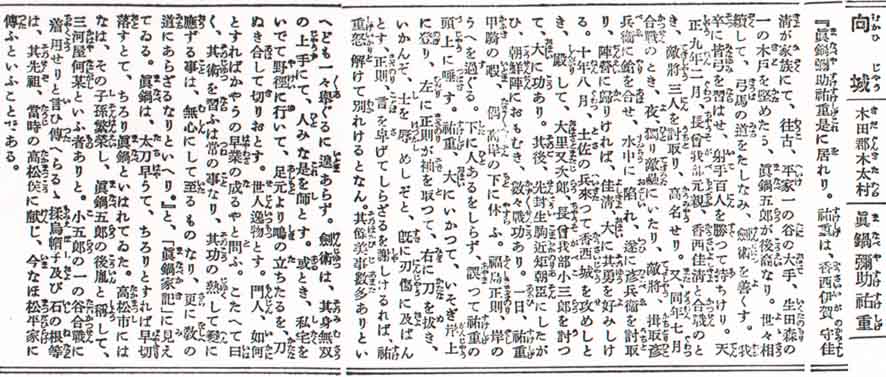 向城
木田郡木太村
眞鍋彌助祐重
『眞鍋彌助祐重是に居れり。祐重は、香西伊賀守佳
清が家族にて、往古、平家一の谷の大手、生田森の
一の木戸を堅めたる、眞鍋五郎が後裔なり。世々相
續して、弓馬の道をたしなみ、劍術を善くす。我
卒に皆弓を習はせ、射手百人を勝つて持ちけり。天
正九年二月、長曾我部元親、香西佳清と合戰のと
き、敵將三人を討取り、高名せり。又、同年七月
合戰のとき、夜、獨り敵壘にいたり、敵將、揖取彦
兵衞に鎗を合せ、水中に陷れ、遂に彦兵衞を討取
り、陣營に歸りければ、佳清、大に其勇を好みしけ
る。十年八月、土佐の兵來つて香西城を攻めしと
き、殿して、大里又次郎、長曾我部小三郎を討つ
て、大に功あり。其後、先封生駒近矩朝臣にしたが
ひ、朝鮮陣におもむき、數々戰功あり。一日、祐重
甲冑の暇、偶高岸の下に休ふ。福島正則、岸の
うへを過ぐる。下に人あるをしらず、誤つて祐重の
頭上に唾す。祐重、大にいかつて、いそぎ岸上
に登り、左に正則が袖を取つて、右に刀を拔き、
いかんぞ、士を辱めしぞと、旣に刃傷に及ばん
とす。正則、言を卑げてしらざるを謝しければ、祐
重怒解けて別れけるとなん。其餘美事數多ありとい
へども一々擧ぐるに遑あらず。劍術は、其身無双
の上手にて、人みな是を師とす。或とき、私宅を
いでて野徑に行いて、足元より鴫の立ちたるを、刀
ぬき合して切りおとす。世人逸物とす。門人、如何
とすればかやうの早業の成るやと問ふ。こたへて曰
く、其術を習ふは常の事なり、其功の熟して爰に
應ずる事は、無心にして至るものなり、更に敎の
道にあらざるなりといへり。』と、「眞鍋家記」に見え
てゐる。眞鍋は、太刀早うて、ちろりとすれば早切
落すとて、ちろり眞鍋といはれてゐた。高松市には
なほ、その子孫繁榮し、眞鍋五郎の後胤と稱して、
三河屋何某といふ者ありと。小五郎の一の谷合戰に
着用せりと言ひ傳へらるゝ揉烏帽子及び石の根等
は、其先祖、當時の高松侯に獻じ、今なほ松平家に
傳ふといふことである。